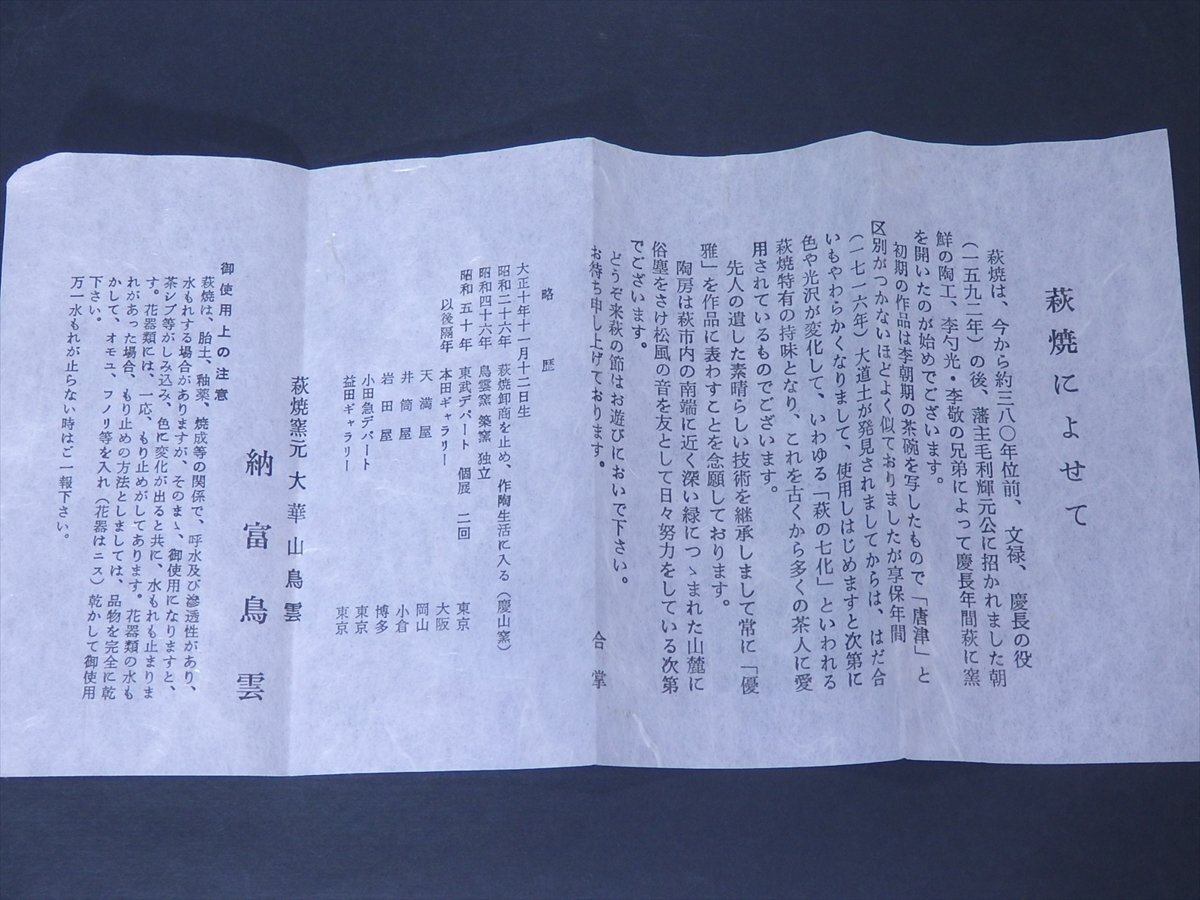 萩焼によせて
萩焼は、今から約三八〇年位前、文禄、慶長の役
（一五九二年）の後、藩主毛利輝元公に招かれました朝
鮮の陶工、李勺光・李敬の兄弟によって慶長年間萩に窯
を開いたのが始めでございます。
初期の作品は李朝期の茶碗を写したもので「唐津」と
区別がつかないほどよく似ておりましたが享保年間
（一七一六年）大道土が発見されましてからは、はだ合
いもやわらかくなりまして、使用しはじめますと次第に
色や光沢が変化して、いわゆる「萩の七化」といわれる
萩焼特有の持味となり、これを古くから多くの茶人に愛
用されているものでございます。
先人の遺した素晴らしい技術を継承しまして常に「優
雅」を作品に表わすことを念願しております。
陶房は萩市内の南端に近く深い緑につゝまれた山麓に
俗塵をさけ松風の音を友として日々努力をしている次第
でございます。
どうぞ来萩の節はお遊びにおいで下さい。
お待ち申し上げております。
合掌
略歴
大正十年十一月十二日生
昭和二十六年 萩焼卸商を止め、作陶生活に入る（慶山窯）
昭和四十六年 鳥雲窯 築窯 独立
昭和五十年 東武デパート 個展 二回 東京
以後隔年 本田ギャラリー 大阪
天満屋 岡山
井筒屋 小倉
岩田屋 博多
小田急デパート 東京
益田ギャラリー 東京
萩焼窯元 大華山鳥雲
納富鳥雲
御使用上の注意
萩焼は、胎土、釉薬、焼成等の関係で、呼水及び滲透性があり、
水もれする場合がありますが、そのまゝ、御使用になりますと、
茶シブ等がしみ込み、色に変化が出ると共に、水もれも止まりま
す。花器類には、一応、もり止めがしてあります。花器類の水も
れがあった場合、もり止めの方法としましては、品物を完全に乾
かして、オモユ、フノリ等を入れ（花器はニス）乾かして御使用
下さい。
万一水もれが止らない時はご一報下さい。